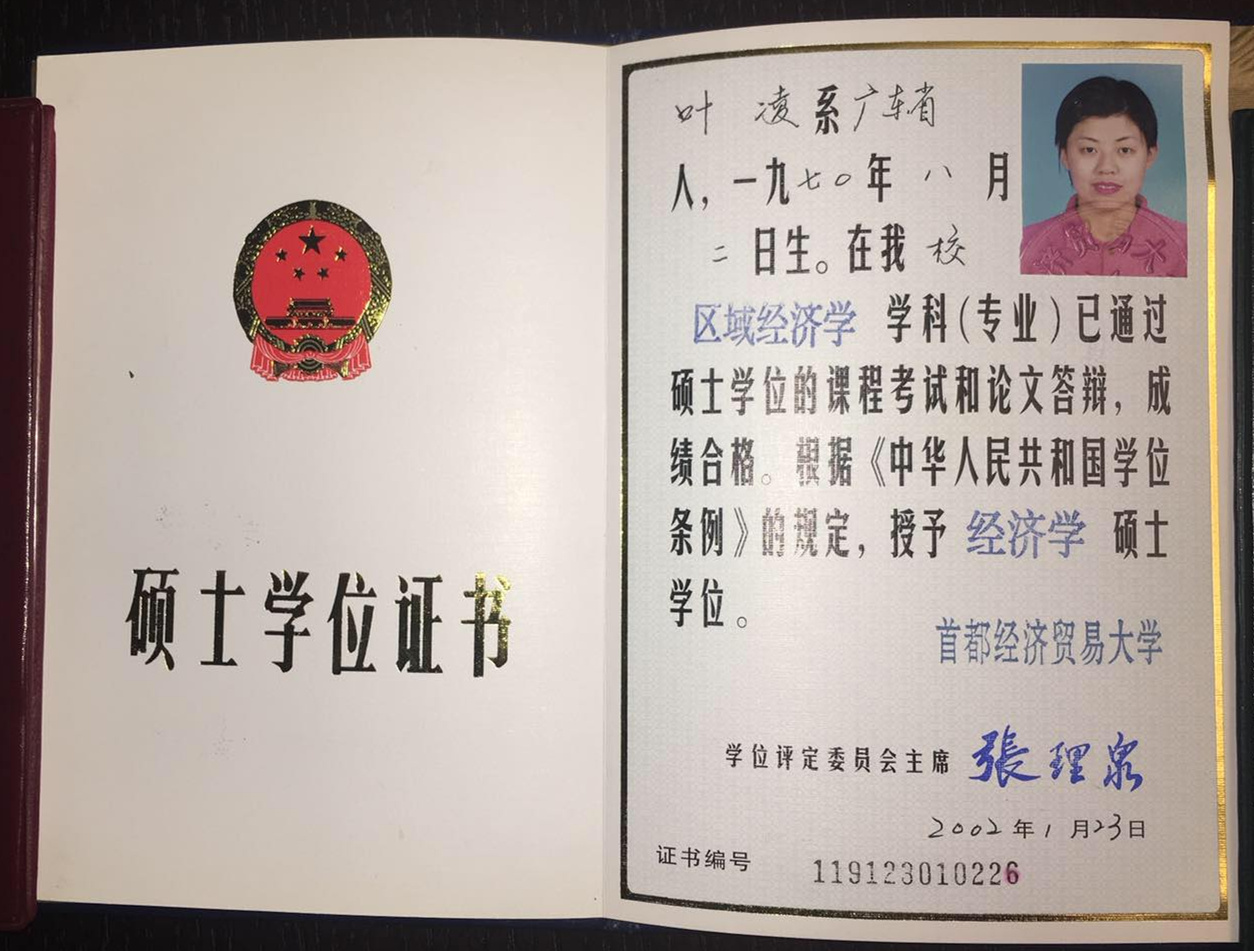 硕士学位证书
叶 凌系广东省
人，一九七〇年 八 月
二 日生。在我 校
区域经济学 学科（专业）已通过
硕士学位的课程考试和论文答辩，成
绩合格。根据《中华人民共和国学位
条例》的规定，授予 经济学 硕士
学位。
首都经济贸易大学
学位评定委员会主席 張理泉
2002 年 1 月 23 日
证书编号 119123010226